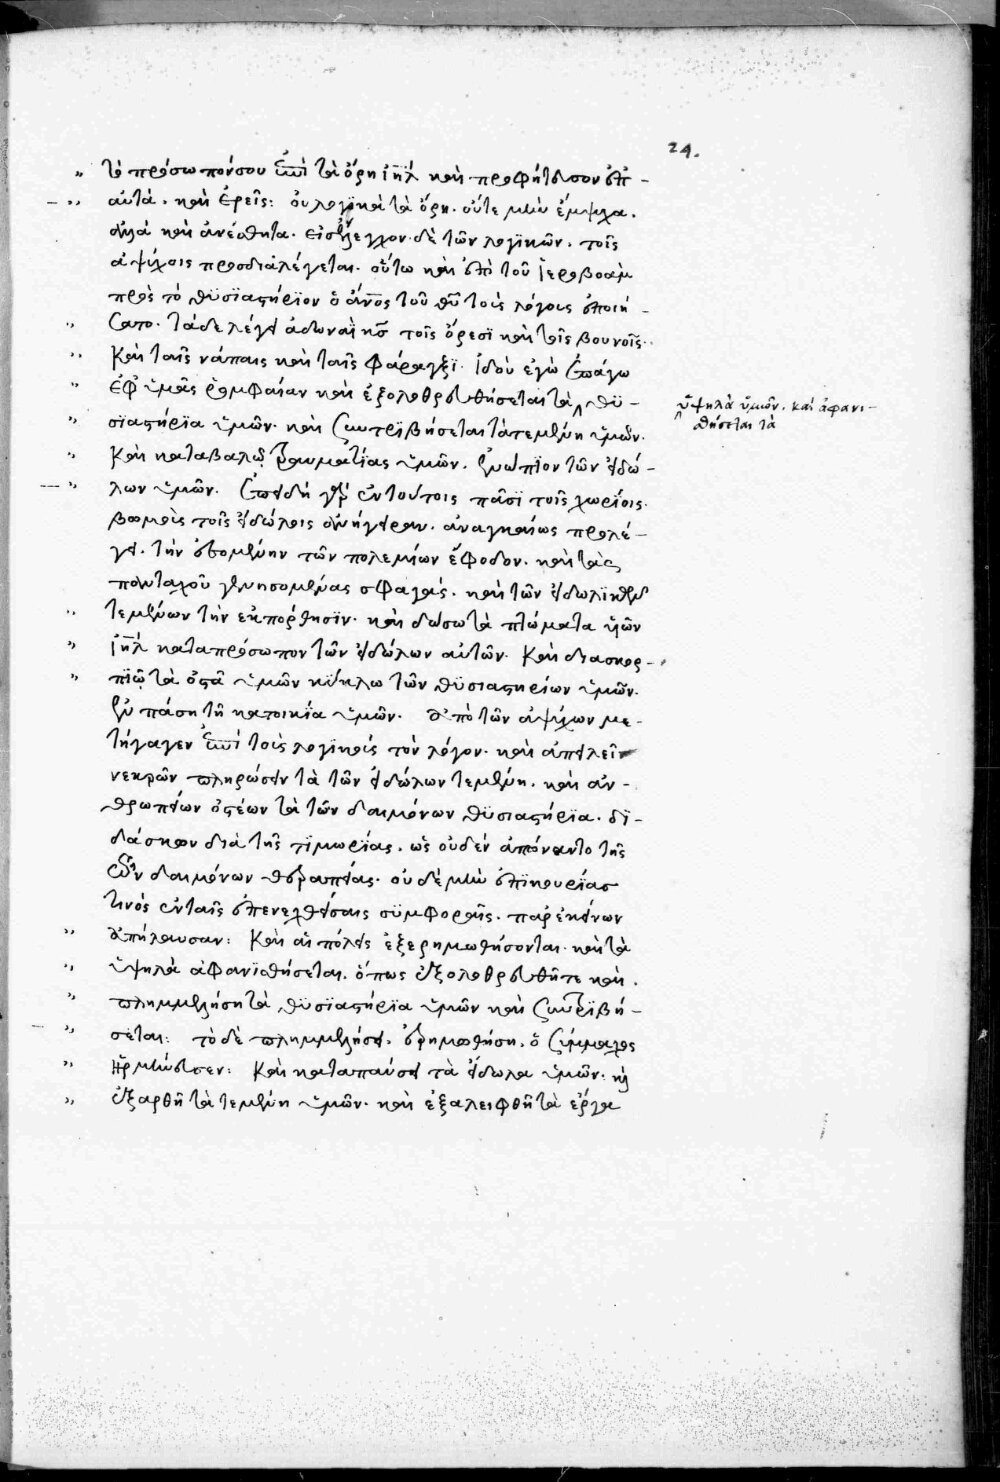 24.
τὸ πρόσωπόν σου ἐπὶ τὰ ὄρη ἰη̅λ καὶ προφήτευσον ἐπ᾽ -
αὐτά. καὶ ἐρεῖς: οὐ λογϊκὰ τὰ ὄρη. οὔτε μὴν ἔμψυχα.
ἀλλὰ καὶ ἀναίσθητα. εἰς ἔλεγχον δὲ τῶν λογϊκῶν. τοῖς
ἀψύχοις προσδιαλέγεται. οὕτω καὶ ἐπὶ τοῦ ἱεροβοὰμ
πρὸς τὸ θϋσϊαστήρϊον ὁ ἄν̅ος τοῦ θ̅υ τοὺς λόγους ἐποιή -
σατο. τάδε λέγει ἀδωναῒ κ̅ς τοῖς ὄρεσϊ καὶ τοῖς βουνοῖς.
καὶ ταῖς νάπαις καὶ ταῖς φάραγξϊ. ἰδοὺ ἐγὼ ἐπάγω
ἐφ᾽ ὑμᾶς ῥομφαίαν καὶ ἐξολοθρευθήσεται τὰ θϋ -
ὕψηλὰ ὑμῶν. καὶ ἀφανι -
σθήσεται τὰ
σϊαστήρϊα ὑμῶν. καὶ συντρϊβήσεται τὰ τεμένη ὑμῶν.
καὶ καταβαλῶ τραυματίας ὑμῶν. ἐνώπϊον τῶν εἰδώ -
λων ὑμῶν. ἐπειδὴ γὰρ ἐν τούτοις πᾶσϊ τοῖς χωρίοις.
βωμοὺς τοῖς εἰδώλοις ἀνήγειραν. ἀναγκαίως προλέ -
γει. τὴν ἐσομένην τῶν πολεμίων ἔφοδον. καὶ τὰς
πανταχοῦ γενησομένας σφαγάς. καὶ τῶν εἰδωλϊκῶν
τεμένων τὴν ἐκπόρθησϊν. καὶ δώσω τὰ πτώματα ὑϊῶν
ἰη̅λ καταπρόσωπον τῶν εἰδώλων αὐτῶν. καὶ διασκορ -
πϊῶ τὰ ὀστᾶ ὑμῶν κύκλω τῶν θϋσιαστηρίων ὑμῶν.
ἐν πάση τῆ κατοικία ὑμῶν. ἀπὸ τῶν ἀψύχων με -
τήγαγεν ἐπὶ τοὺς λογϊκοὺς τὸν λόγον. καὶ ἀπειλεῖ
νεκρῶν πληρώσειν τὰ τῶν εἰδώλων τεμένη. καὶ ἀν -
θρωπείων ὀστέων τὰ τῶν δαιμόνων θϋσιαστήρϊα. δϊ -
δάσκων διὰ τῆς τϊμωρίας. ὡς οὐδὲν ἀπόναντο τῆς
τῶν δαιμόνων θεραπείας. οὐδὲ μὴν ἐπϊκουρίας
τινὸς ἐν ταῖς ἐπενεχθείσαις σϋμφοραῖς. παρ᾽ ἐκείνων
ἀπήλαυσαν: καὶ αἱ πόλεις ἐξερημωθήσονται. καὶ τὰ
ὑψηλὰ ἀφανϊσθήσεται. ὅπως ἐξολοθρευθῆτε καὶ.
πλημμελήση τὰ θϋσϊαστήρϊα ὑμῶν καὶ συντρϊβή -
σεται: τὸ δὲ πλημμελήσει. ἐρημωθήση. ὁ σύμμαχος
ἡρμήνευσεν: καὶ καταπαύσει τὰ εἴδωλα ὑμῶν. κὴ
ἐξαρθῆ τὰ τεμένη ὑμῶν. καὶ ἐξαλειφθῆ τὰ ἔργα